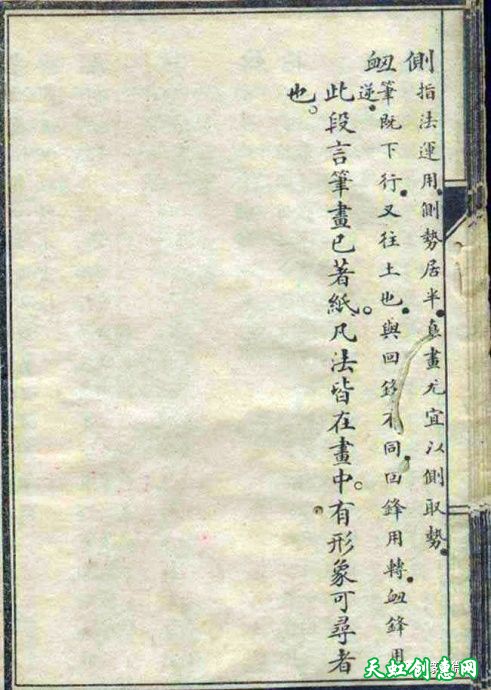 側 指法運用側勢居半直畫尤宜以側取勢
衄 筆既下行又往土也與回鋒不同回鋒用轉衄鋒用
逆
此段言筆畫已著紙。凡法皆在畫中。有形象可尋者
也。
天虹创意网